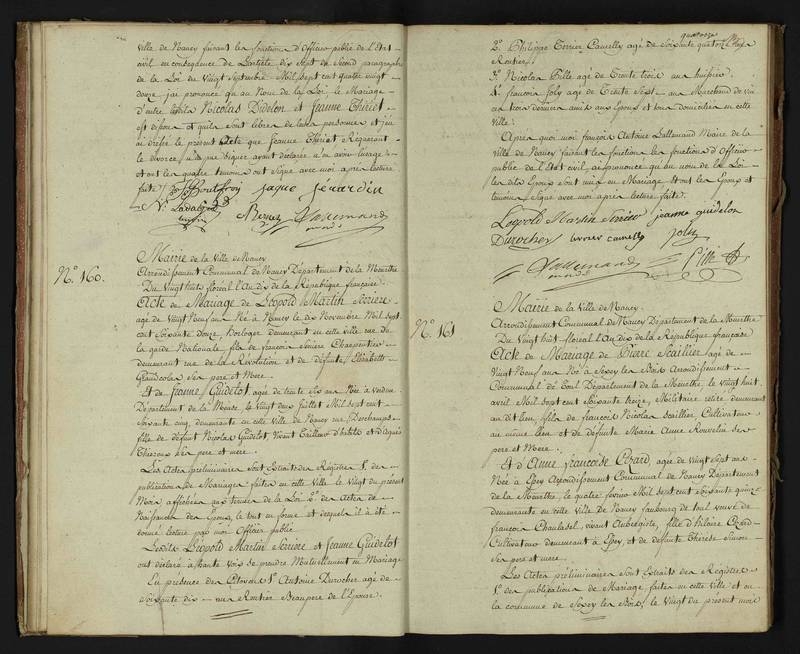 Ville de Nancy faisant les fonction d'Officier public de l'Etat
civil en consequence de l'article dix sept du second paragraphe
de la Loi du Vingt Septembre Mil sept cent quatre vingt
douze j'ai prononcé au Nom de la Loi le Mariage
d'entre Nicolas Didelon et Jeanne Thiriet
est dissous et qu'ils sont libres de leurs personnes et j'ai
dressé le present Acte que Jeanne Thiriet Requerant
le divorce n'a pas signer ayant déclaré n'en avoir l'usage
et ont les quatre temoins ont Signé avec moi apres lecture
faite Bouttroy Jaque Jérardin
Lallemand
N.º 160.
Mairie de la Ville de Nancy
Arrondissement Communal de Nancy Département de la Meurthe
Du vingt huit floreal l'An dix de la Republique française
Acte de Mariage de Léopold Martin Serriere
agé de vingt Neuf ans Né à Nancy le dix Novembre Mil sept
cent soixante douze, horloger demeurant en cette ville rue de
la garde Nationale, fils de françois Serriere Charpentier
demeurant rue de la Révolution et de defunte Elisabeth
Grandcolas Ses pere et Mere.
Et de Jeanne Guidelot agée de trente six ans Née à Verdun
Département de la Meuse le vingt deux Juillet Mil sept cent
Soixante cinq, demeurante en cette Ville de Nancy rue Deschamps
fille de défunt Nicolas Guidelot, Vivant Tailleur d'habits et d'Agnès
ses pere et mere.
Les Actes préliminaires sont Extraits des Registres 1.º des
publications de Mariages faites en cette Ville le Vingt du present
Mois affichées aux termes de la Loi 2.º des Actes de
Naissances des Epoux, le tout en forme et desquels il à été
donné lecture par moi Officier public
Lesdits Léopold Martin Serriere et Jeanne Guidelot
ont déclaré à haute Voix se prendre Mutuellement en Mariage
En présence des Citoyens 1.º Antoine Durocher agé de
soixante dix ans Rentier Beaupere de l'Epouse.
quatorze
2.º Philippe Terrier Camelly agé de Soixante quatorze ans
Rentier.
3.º Nicolas Gille agé de Trente trois ans huissier
4.º françois Joly agé de Trente Sept ans Marchand de vin
ces trois derniers amis aux Epoux et tous domiciliés en cette
Ville.
Après quoi moi françois Antoine Lallemand Maire de la
Ville de Nancy faisant les fonctions d'Officier
public de l'Etat civil, ai prononcé qu'au nom de la Loi
lesdits Epoux sont unis en Mariage et ont les Epoux et
temoins Signé avec moi apres lecture faite.
Léopold Martin Serriere jeanne guidelon
Durocher terrier camelly Joly
Lallemand Gille
N.º 161
Mairie de la Ville de Nancy.
Arrondissement Communal de Nancy Département de la Meurthe
Du Vingt huit floreal l'An dix de la Republique française
Acte de Mariage de Pierre Scaillier agé de
Vingt Neuf ans Né à Sexey les Bois Arrondissement
Communal de Toul Département de la Meurthe, le vingt huit
avril Mil sept cent Soixante treize, Militaire retiré demeurant
au dit lieu, fils de francois Nicolas Scaillier, Cultivateur
au même lieu et de défunte Marie Anne Rouvelin ses
pere et Mere.
Et d'Anne françoise Cézard, agée de vingt Sept ans
Née à Epey Arrondissement Communal de Nancy Département
de la Meurthe, le quatre Mil sept cent soixante quinze
demeurante en cette Ville de Nancy faubourg de toul veuve de
françois Chaulasel, vivant Aubergiste, fille d'hilaire Cézard
Cultivateur demeurant à Epey, et de defunte Thérèse Simon
Ses pere et mere.
Les Actes préliminaires sont Extraits des Registres
1.º des publications de Mariage faites en cette Ville et en
la commune de Sexey les Bois, le vingt du présent mois